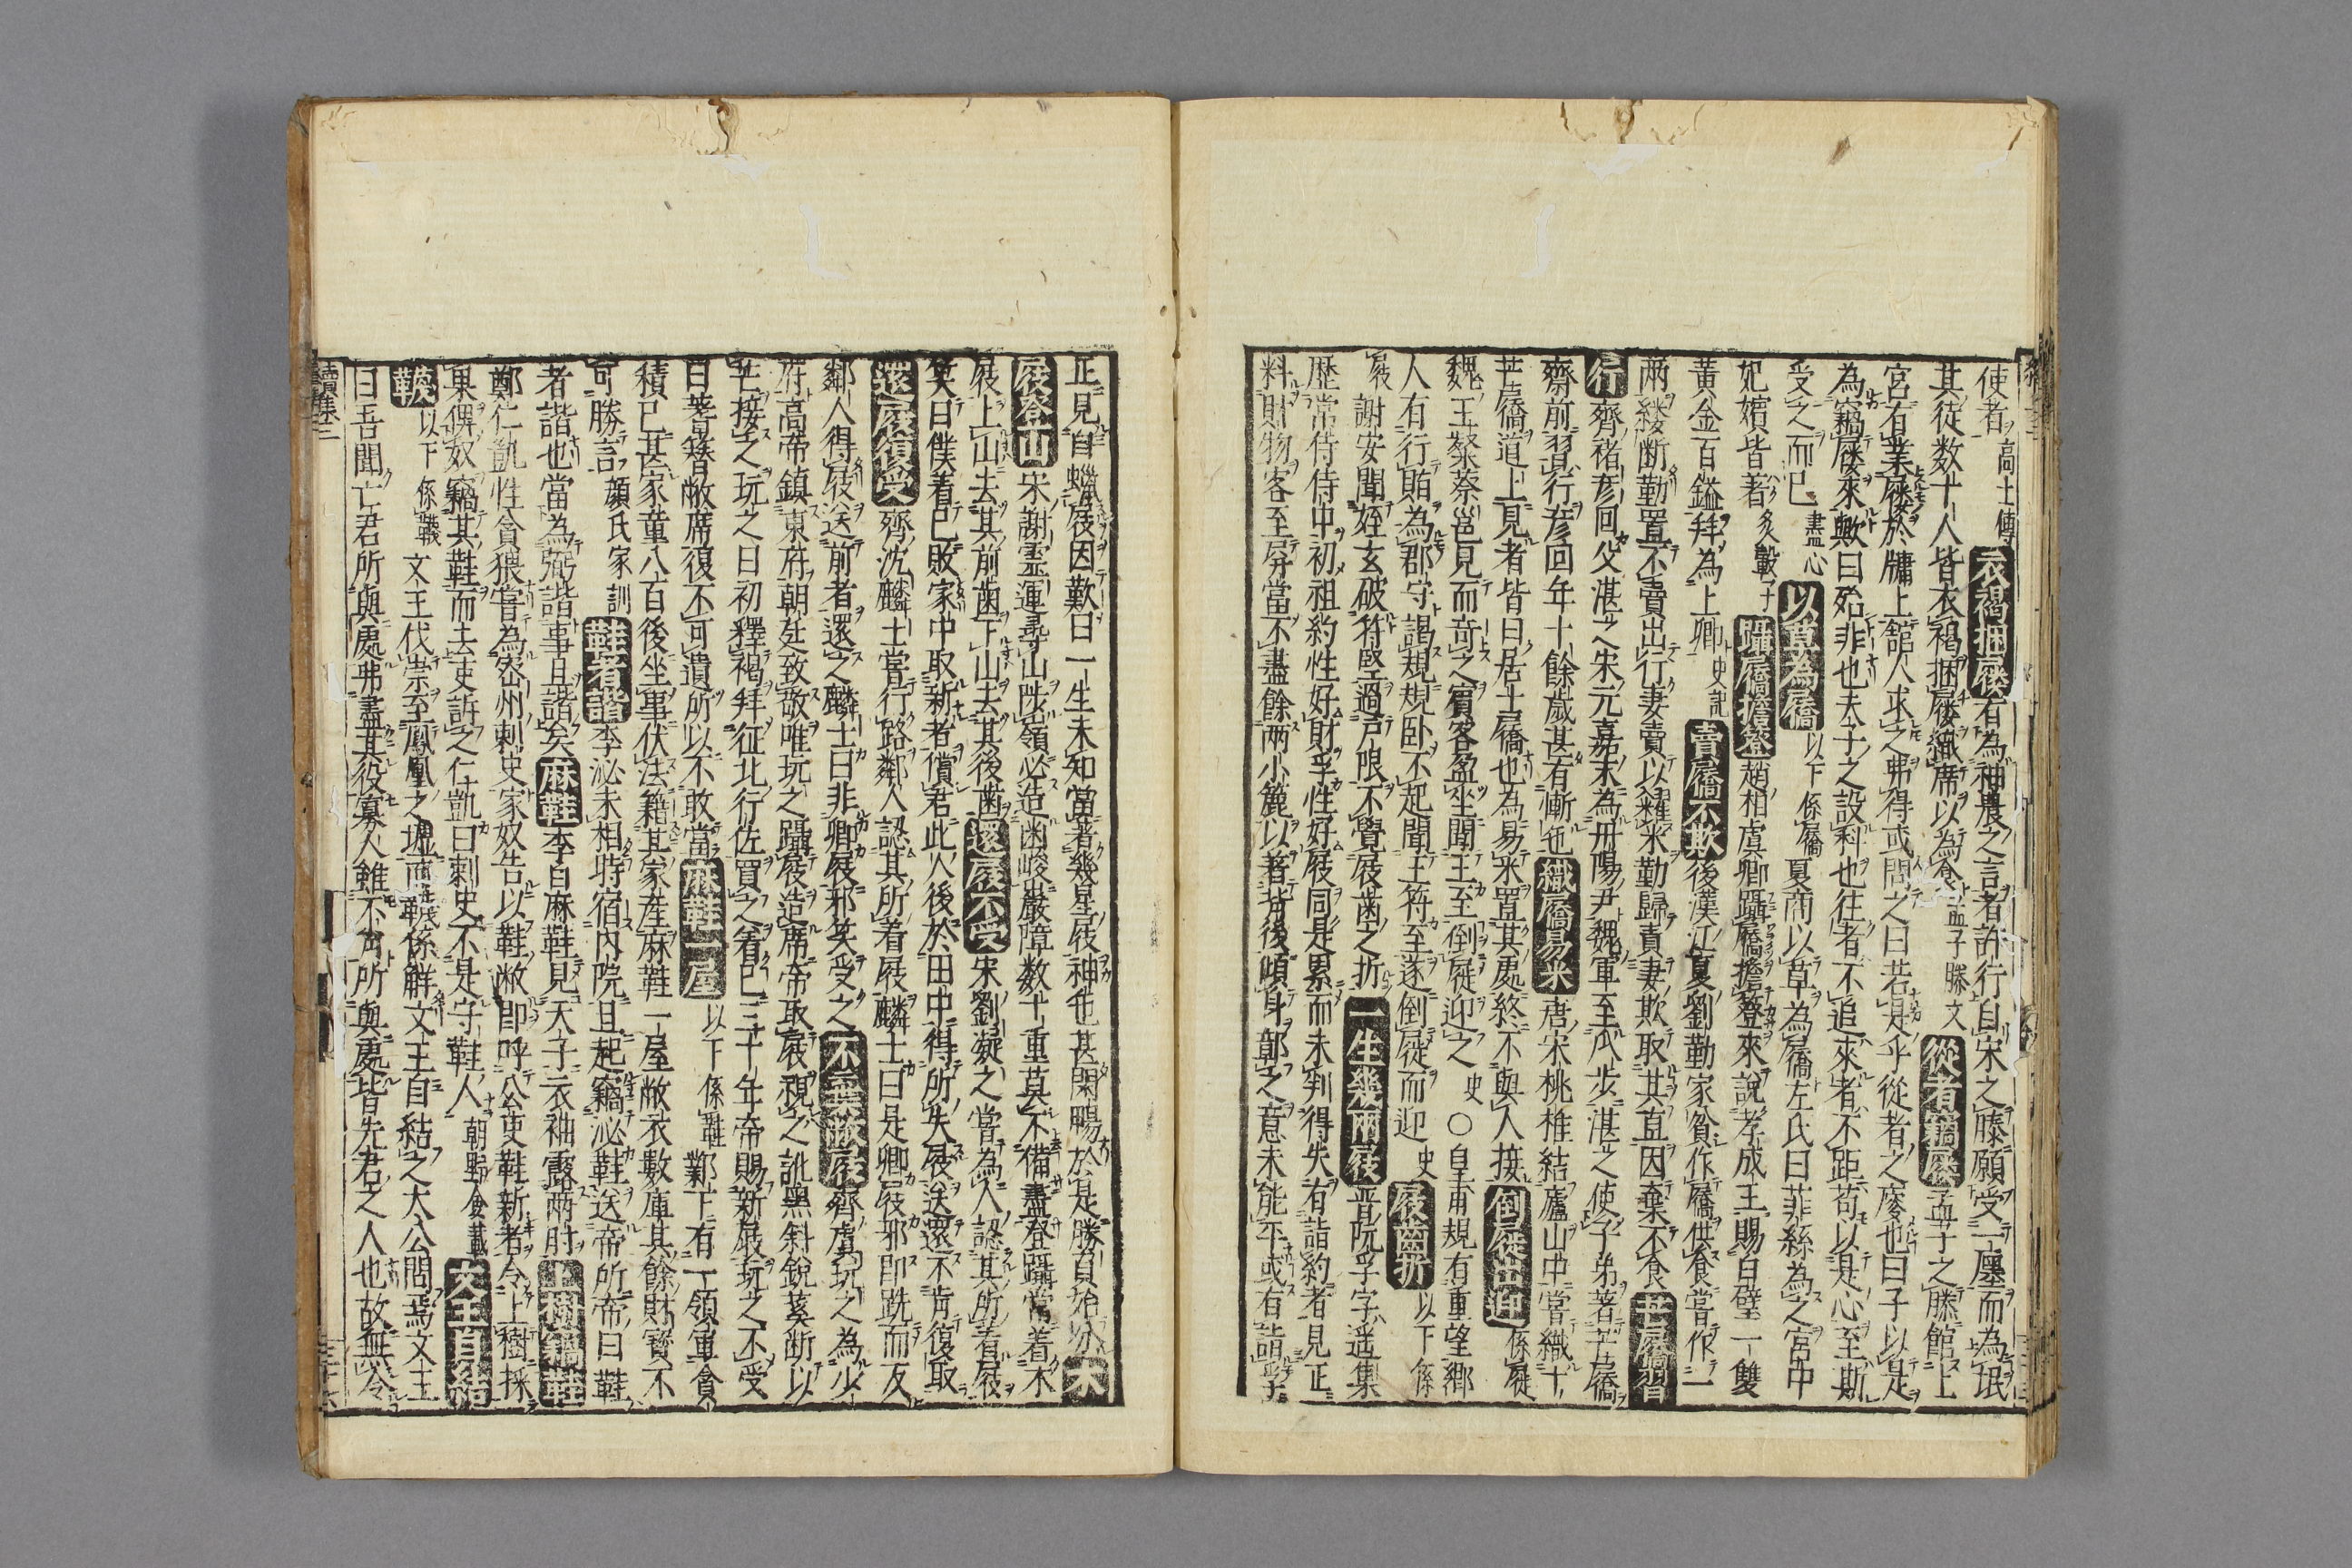 使者高士傳衣褐捆屨有為神農之言者許行自宋之滕願受一廛而為氓
其徒数十人皆衣褐捆屨織席以為食孟子滕文從者竊屨孟子之滕館上
宮有業屨於牖上舘人求之弗得或問之曰若是乎從者之廋也曰子以是
為竊屨來歟曰殆非也夫子之設科也往者不追來者不距苟以是心至斯
受之而已盡心以草為屩以下係屩夏商以草為屩左氏曰菲絲為之宮中
妃嬪皆著炙轂子躡屩擔簦趙相虞卿躡屩擔簦來說孝成王賜白璧一雙
黃金百鎰拜為上卿史記賣屩不欺後漢江夏劉勤家貧作屩供食甞作一
兩緩断勤置不賣出行妻賣以糴米勤歸責妻欺取其直因棄不食芒屩習
行齊褚彦回父湛之宋元嘉末為丹陽尹魏軍至瓜步湛之使子弟著芒屩
齋前習行彦回年十餘歳甚有慚色織屩易米唐宋桃椎結廬山中嘗織十
芒屩道上見者皆曰居士屩也為易米置其處終不與人接倒屣出迎係屣
魏王粲蔡邕見而奇之賓客盈坐聞王至倒屣迎之史〇皇甫規有重望鄉
人有行賂為郡守謁規規卧不起聞王符至遂倒屣而迎史屐齒折以下係
屐謝安聞姪玄破符堅過戸限不覺屐歯之折一生幾兩屐晋阮孚字遥集
歴常侍侍中初祖約性好財孚性好屐同是累而未判得失有詣約者見正
料財物客至屏當不盡餘兩小簏以著背後傾身鄣之意未能平或有詣孚
正見自蠟屐因歎曰一生未知當著幾量屐神色甚閑暢於是勝負始分木
屐登山宋謝霊運尋山陟嶺必造幽峻巖障数十重莫不備盡登躡常着木
屐上山去其前歯下山去其後歯還屐不受宋劉凝之嘗為人認其所着屐
笑曰僕着已敗家中取新者償君此人後於田中得所失屐送還不肯復取
還屐復受齊沈麟士當行路鄰人認其所着屐麟士曰是卿屐邪即跣而反
鄰人得屐送前者還之麟士曰非卿屐邪笑受之不棄敝屐齊虞玩之為少
府高帝鎮東府朝廷致敬唯玩之躡屐造席帝取屐視之訛黑斜銳蒵断以
芒接之玩之曰初釋褐拜征北行佐買之着已三十年帝賜新屐玩之不受
曰著簪敝席復不可遺所以不敢當麻鞋一屋以下係鞋鄴下有一領軍貪
積已甚家童八百後坐事伏法籍其家産麻鞋一屋敝衣數庫其餘財寳不
可勝言顔氏家訓鞋者諧李泌未相時宿内院旦起竊泌鞋送帝所帝曰鞋
者諧也當為弼諧事且諧矣麻鞋李白麻鞋見天子衣袖露两肘上樹竊鞋
鄭仁凱性貪猥甞為密州刺史家奴告以鞋敝即呼公吏鞋新者令上樹採
果俾奴竊其鞋而去吏訴之仁凱曰刺史不是守鞋人朝野僉載文王自結
韈以下係韈文王伐崇至鳳凰之墟而韈係解文王自結之太公問焉文王
曰吾聞亡君所與處弗盡其役寡人雖不肖所與處皆先君之人也故無令